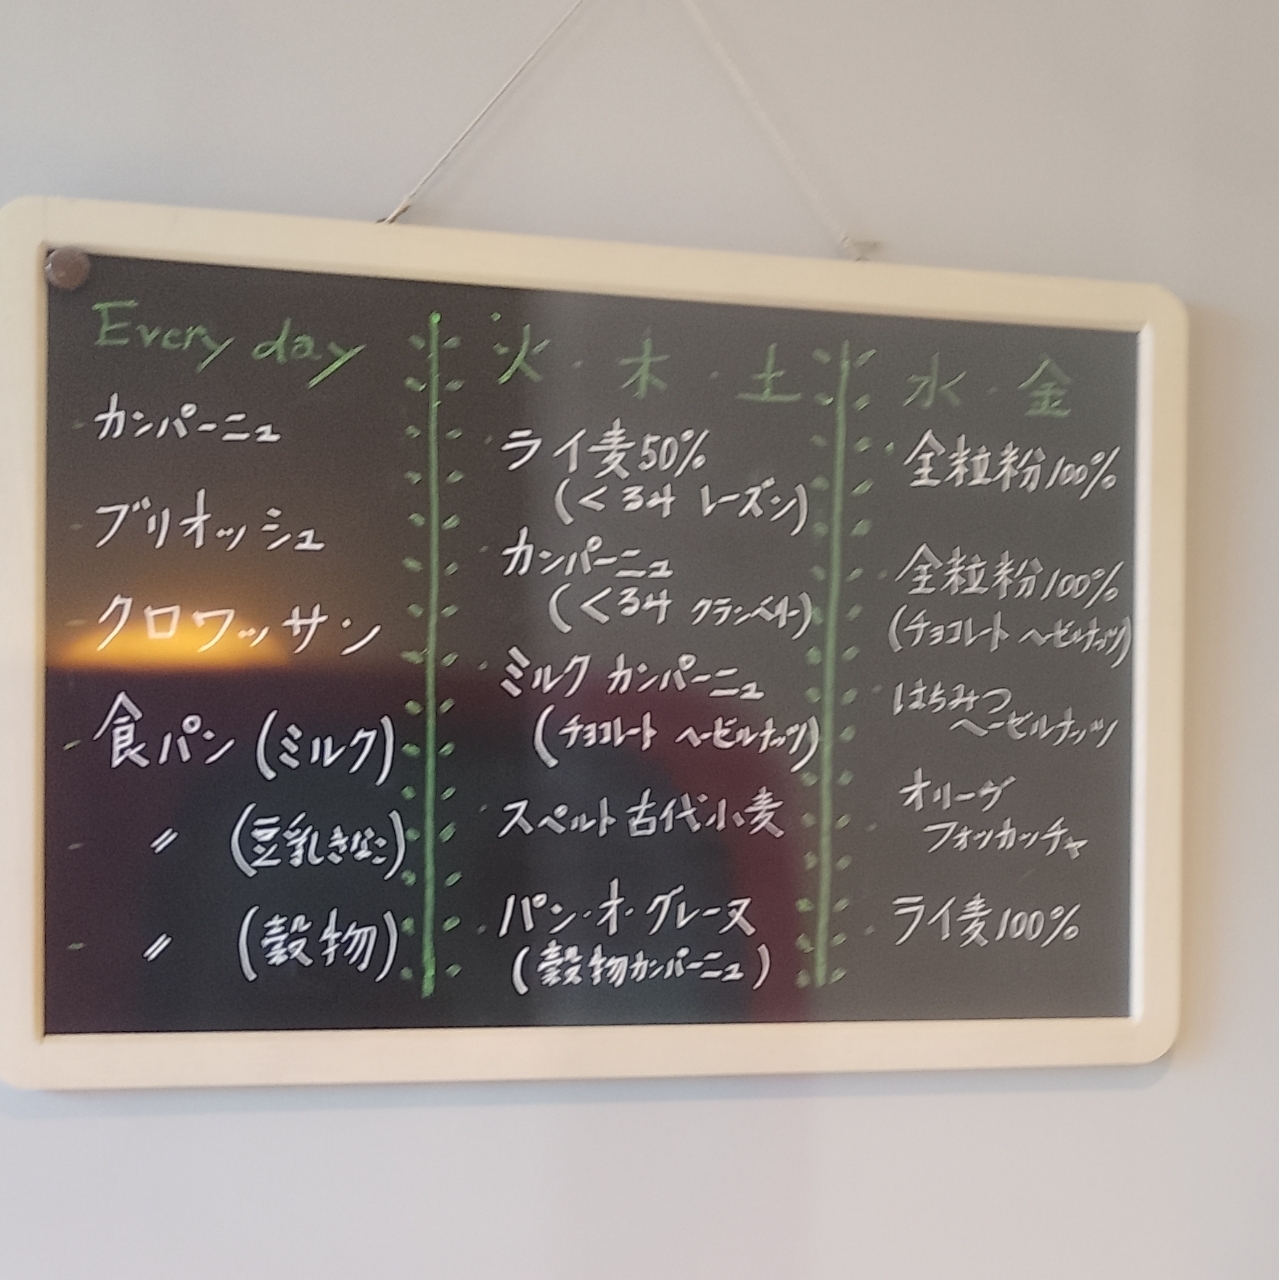 Every day
カンパーニュ
ブリオッシュ
クロワッサン
食パン (ミルク)
〃 (豆乳きなこ)
〃 (穀物)
火・木・土
ライ麦50%
(くるみ レーズン)
カンパーニュ
(くるみ クランベリー)
ミルク カンパーニュ
(チョコレート ヘーゼルナッツ)
スペルト古代小麦
パン・オ・グレーヌ
(穀物カンパーニュ)
水・金
全粒粉100%
全粒粉100%
(チョコレート ヘーゼルナッツ)
はちみつ
ヘーゼルナッツ
オリーヴ
フォッカッチャ
ライ麦100%